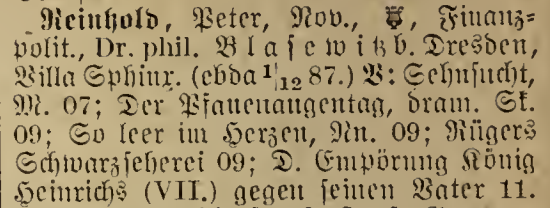 Reinhold, Peter, Nov., Finanz-
polit., Dr. phil. Blasewitz b. Dresden,
Villa Sphinx. (ebda 1/12 87.) V: Sehnsucht,
M. 07; Der Pfauenaugentag, dram. Sk.
09; So leer im Herzen, Nn. 09; Rügers
Schwarzseherei 09; D. Empörung König
Heinrichs (VII.) gegen seinen Vater 11.